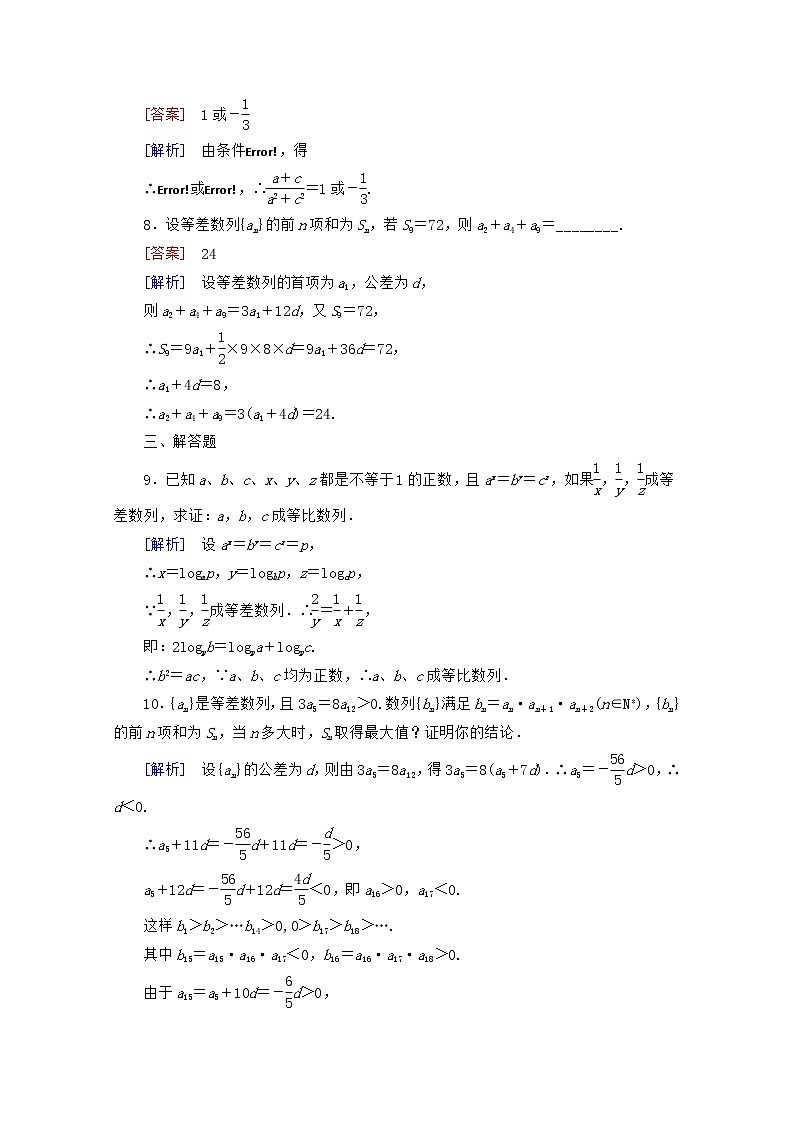 [答案]　1或-1/3
[解析]　由条件Error!,得
∴Error!或Error!,∴(a+c)/(a²+c²)=1或-1/3.
8.设等差数列{aₙ}的前n项和为Sₙ,若S₉=72,则a₂+a₄+a₉=________.
[答案]　24
[解析]　设等差数列的首项为a₁,公差为d,
则a₂+a₄+a₉=3a₁+12d,又S₉=72,
∴S₉=9a₁+1/2×9×8×d=9a₁+36d=72,
∴a₁+4d=8,
∴a₂+a₄+a₉=3(a₁+4d)=24.
三、解答题
9.已知a、b、c、x、y、z都是不等于1的正数,且aˣ=bʸ=cᶻ,如果1/x,1/y,1/z成等
差数列,求证:a,b,c成等比数列.
[解析]　设aˣ=bʸ=cᶻ=p,
∴x=logₐp,y=log_b p,z=log_c p,
∵1/x,1/y,1/z成等差数列.∴2/y=1/x+1/z,
即:2logₚb=logₚa+logₚc.
∴b²=ac,∵a、b、c均为正数,∴a、b、c成等比数列.
10.{aₙ}是等差数列,且3a₅=8a₁₂>0.数列{bₙ}满足bₙ=aₙ·aₙ₊₁·aₙ₊₂(n∈N*),{bₙ}
的前n项和为Sₙ,当n多大时,Sₙ取得最大值?证明你的结论.
[解析]　设{aₙ}的公差为d,则由3a₅=8a₁₂,得3a₅=8(a₅+7d).∴a₅=-56/5d>0,∴
d<0.
∴a₅+11d=-56/5d+11d=-d/5>0,
a₅+12d=-56/5d+12d=4d/5<0,即a₁₆>0,a₁₇<0.
这样b₁>b₂>…b₁₄>0,0>b₁₇>b₁₈>….
其中b₁₅=a₁₅·a₁₆·a₁₇<0,b₁₆=a₁₆·a₁₇·a₁₈>0.
由于a₁₅=a₅+10d=-6/5d>0,